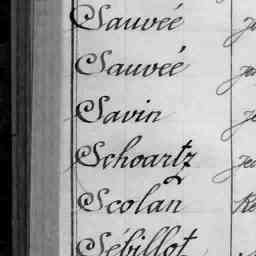 Sauvée
Sauvée
Savin
Schoartz
Scolan
Sébillot